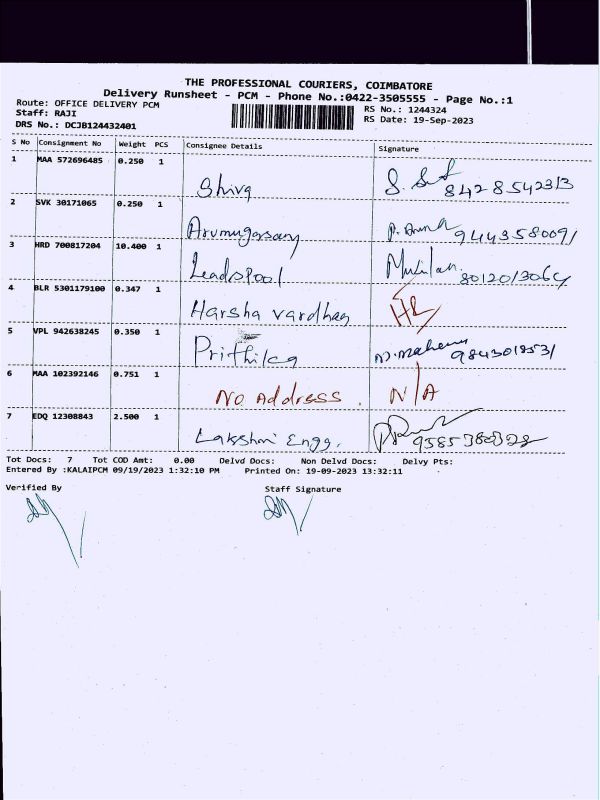 THE PROFESSIONAL COURIERS, COIMBATORE
Delivery Runsheet - PCM - Phone No.:0422-3505555 - Page No.:1
Route: OFFICE DELIVERY PCM
Staff: RAJI
DRS No.: DCJB124432401
RS No.: 1244324
RS Date: 19-Sep-2023
S No Consignment No Weight PCS Consignee Details Signature
1 MAA 572696485 0.250 1 Shiva
2 SVK 30171065 0.250 1 Arumugasamy
3 HRD 700817204 10.400 1 Leadspool Mukilan
4 BLR 5301179100 0.347 1 Harsha vardhan
5 VPL 942638245 0.350 1 Prithika 9843018531
6 MAA 102392146 0.751 1 No Address. N/A
7 EDQ 12308843 2.500 1 Lakshmi Engg.
Tot Docs: 7 Tot COD Amt: 0.00 Delvd Docs: Non Delvd Docs: Delvy Pts:
Entered By :KALAIPCM 09/19/2023 1:32:10 PM Printed On: 19-09-2023 13:32:11
Verified By Staff Signature